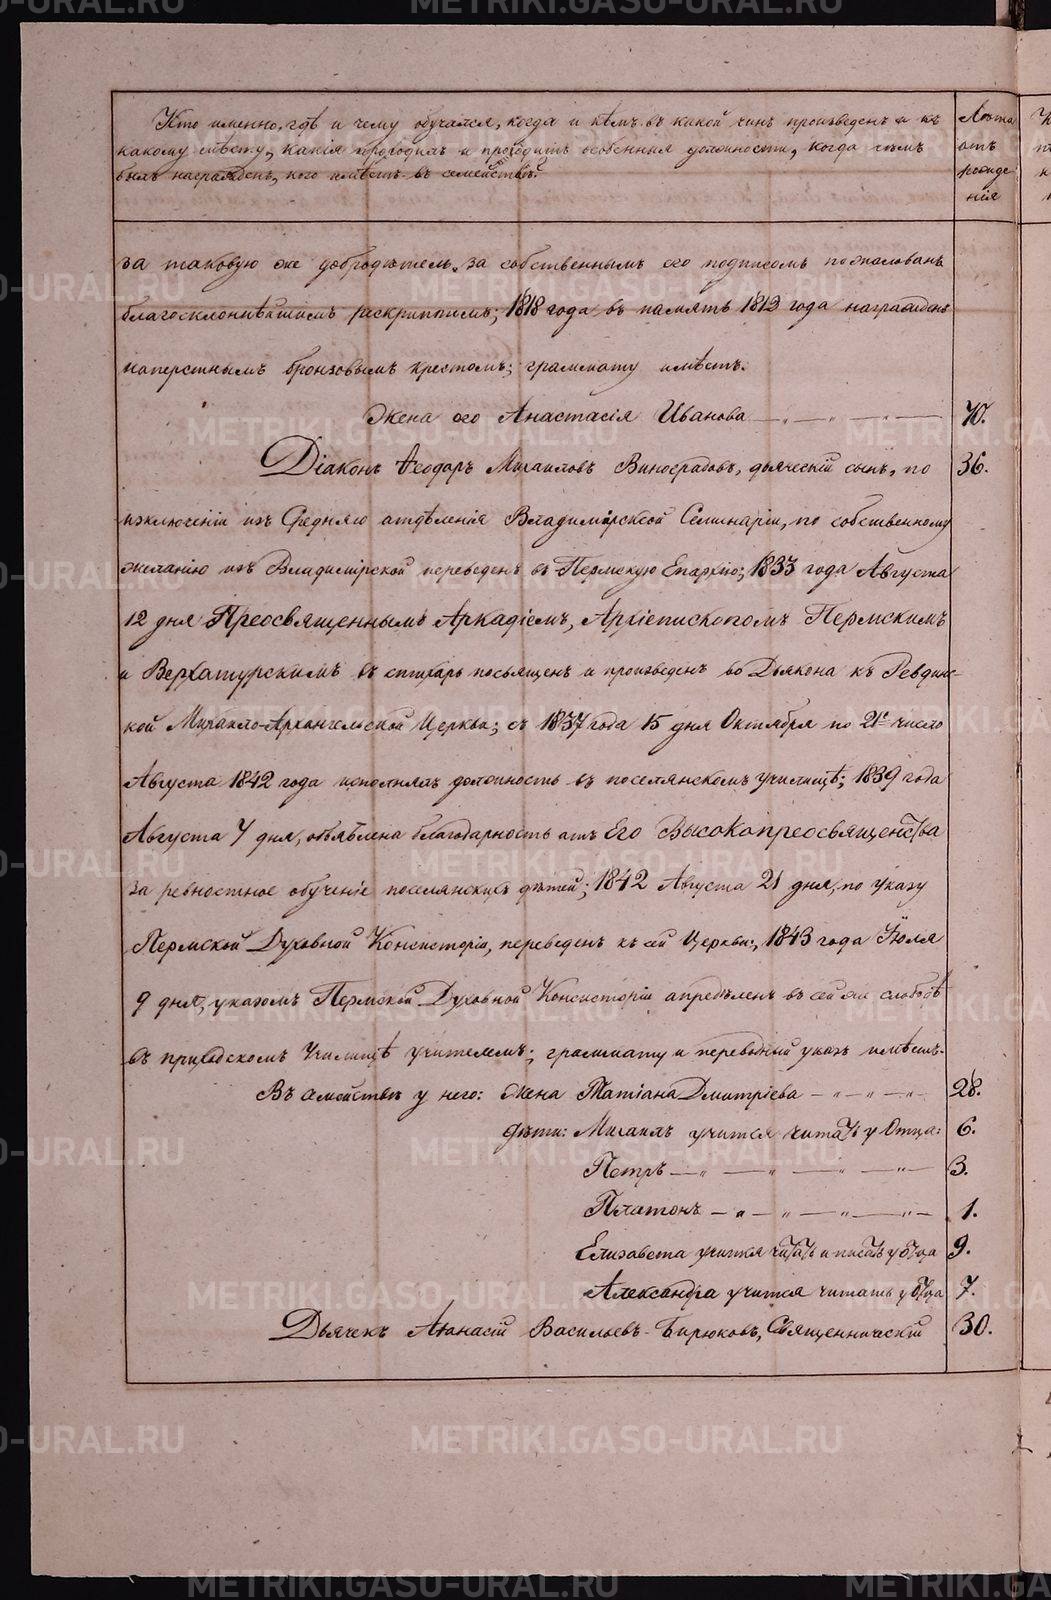 Кто именно, гдѣ и чему обучался, когда и кѣмъ въ какой чинъ произведенъ и къ
какому мѣсту, какія проходилъ и проходитъ особенныя должности, когда чѣмъ
былъ награжденъ, кого имѣетъ въ семействѣ.
Лѣта
отъ
рожде
нія
за таковую же добродѣтель, за собственнымъ его подписомъ пожалованъ
благосклоннѣйшимъ рескриптомъ; 1818 года въ память 1812 года награжденъ
наперстнымъ бронзовымъ крестомъ; граммату имѣетъ.
Жена его Анастасія Иванова 70.
Діаконъ Ѳеодоръ Михаиловъ Виноградовъ, дьяческій сынъ, по 36.
изключеніи изъ Средняго отдѣленія Владимірской Семинаріи, по собственному
желанію изъ Владимірской переведенъ въ Пермскую Епархію; 1833 года Августа
12 дня Преосвященнымъ Аркадіемъ, Архіепископомъ Пермскимъ
и Верхотурскимъ въ стихарь посвященъ и произведенъ во Дьякона къ Ревдинс-
кой Михаило-Архангельской Церкви; съ 1837 года 15 дня Октября по 21е число
Августа 1842 года исполнялъ должность въ поселянскомъ училищѣ; 1839 года
Августа 7 дня, объявлена благодарность отъ Его Высокопреосвященства
за ревностное обученіе поселянскихъ дѣтей; 1842 Августа 21 дня, по указу
Пермской Духовной Консисторіи, переведенъ къ сей Церкви; 1843 года Іюля
9 дня, указомъ Пермской Духовной Консисторіи опредѣленъ въ сей же слободѣ
въ приходскомъ Училищѣ учителемъ; граммату и переводный указъ имѣетъ.
Въ семействѣ у него: Жена Татіана Дмитріева 28.
дѣти: Михаилъ учится читать у Отца: 6.
Петръ 3.
Платонъ 1.
Елизавета учится читать и писать у отца 9.
Александра учится читать у отца 7.
Дьячекъ Аѳанасій Васильевъ Бирюковъ, Священническій 30.
METRIKI.GASO-URAL.RU